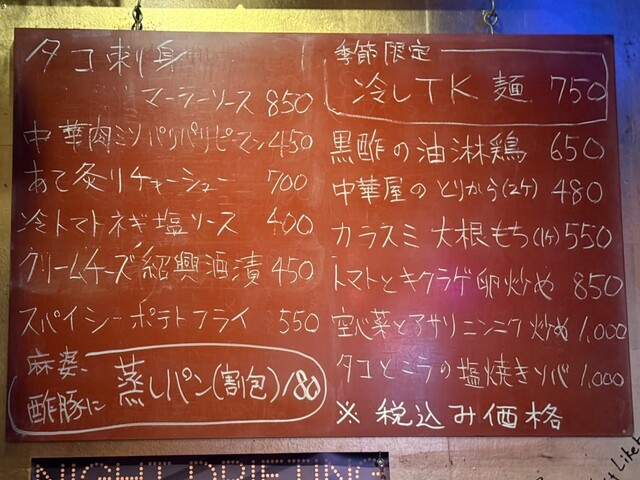 タコ刺身
マーラーソース 850
中華肉ミソパリパリピーマン 450
あて炙りチャーシュー 700
冷トマトネギ塩ソース 400
クリームチーズ紹興酒漬 450
スパイシーポテトフライ 550
麻婆、
酢豚に 蒸しパン(割包) 180
季節限定
冷しTK麺 750
黒酢の油淋鶏 650
中華屋のとりから(2ケ) 480
カラスミ大根もち(1ケ) 550
トマトとキクラゲ卵炒め 850
空心菜とアサリニンニク炒め 1,000
タコとニラの塩焼きソバ 1,000
※税込み価格
NIGHT DRIFTING